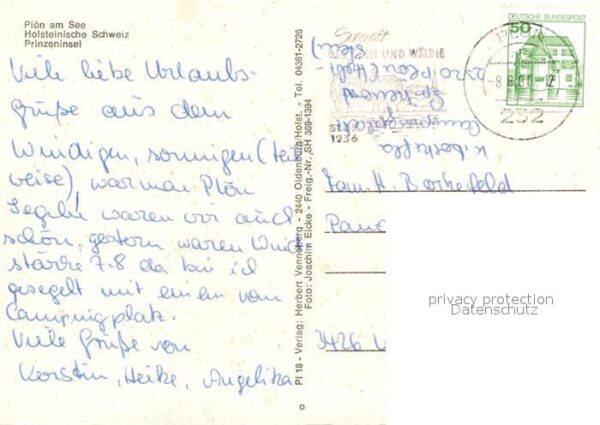 Plön am See
Holsteinische Schweiz
Prinzeninsel
Viele liebe Urlaubs-
grüße aus dem
windigen, sonnigen (teil
weise), warmen Plön
Segeln waren wir auch
schon, gestern waren Wind
stärke 7-8 da bin ich
gesegelt mit einem vom
Campingplatz.
Viele Grüße von
Kerstin, Heike, Angelika
Pl 18 - Verlag: Herbert Venneberg - 2440 Oldenburg/Holst. Tel. 04361-2726
Foto: Joachim Eicke - Freig.-Nr. SH 369-1394
Stadt
UND WÄLDER
1236
DEUTSCHE BUNDESPOST
50
PLÖN
232
Campingplatz
Spitzenort
2320 Plön (Hol-
stein)
Fam. H.
3426
privacy protection
Datenschutz